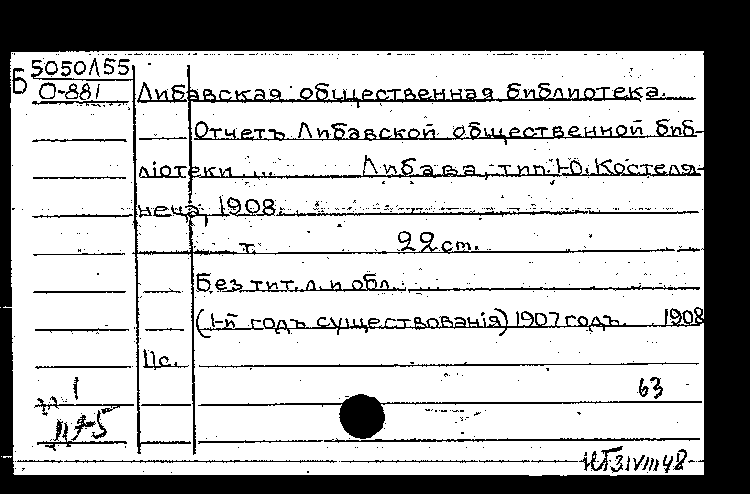 Б 5050Л55
О-881 Либавская общественная библиотека.
Отчетъ Либавской общественной биб-
лiотеки ... Либава, тип. Ю. Костеля-
неца, 1908.
т. 22 cm.
Без тит. л. и обл. ....
(1-й годъ существованiя) 1907 годъ. 1908
11 с.
1 63